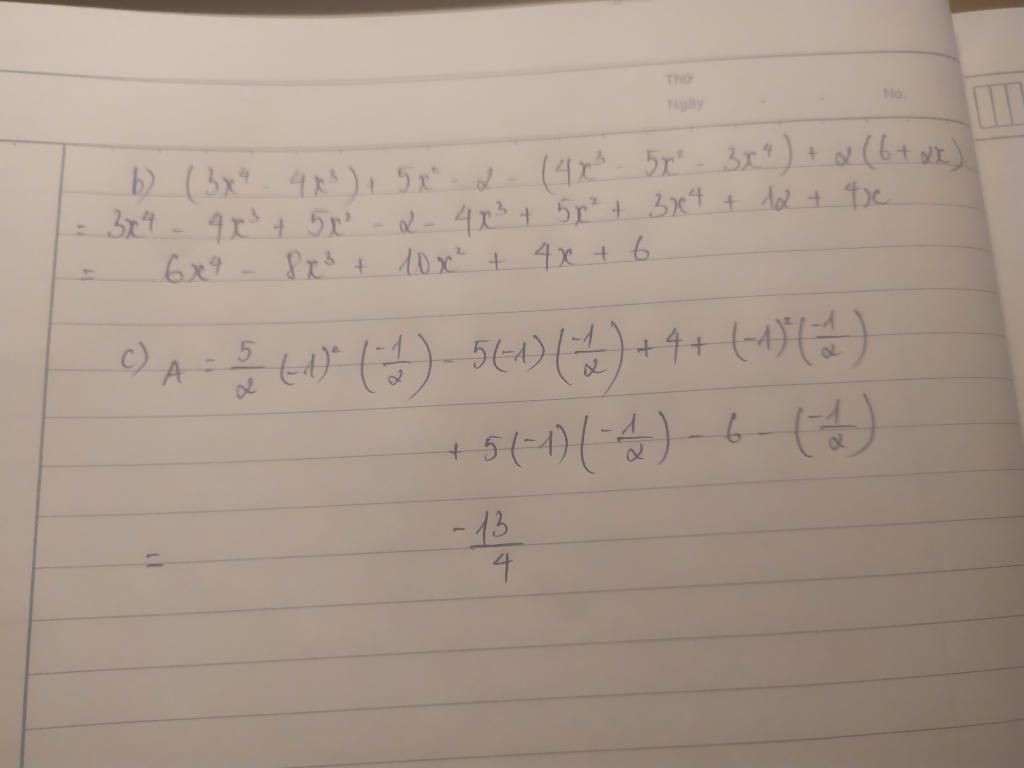 Thứ
Ngày No.
b) (3x⁴ - 4x³) + 5x² - 2 - (4x³ - 5x² - 3x⁴) + 2(6+2x)
= 3x⁴ - 4x³ + 5x² - 2 - 4x³ + 5x² + 3x⁴ + 12 + 4x
= 6x⁴ - 8x³ + 10x² + 4x + 6
c) A = 5/2 (-1)² (-1/2) - 5(-1)(-1/2) + 4 + (-1)² (-1/2)
+ 5(-1)(-1/2) - 6 - (-1/2)
= -13/4